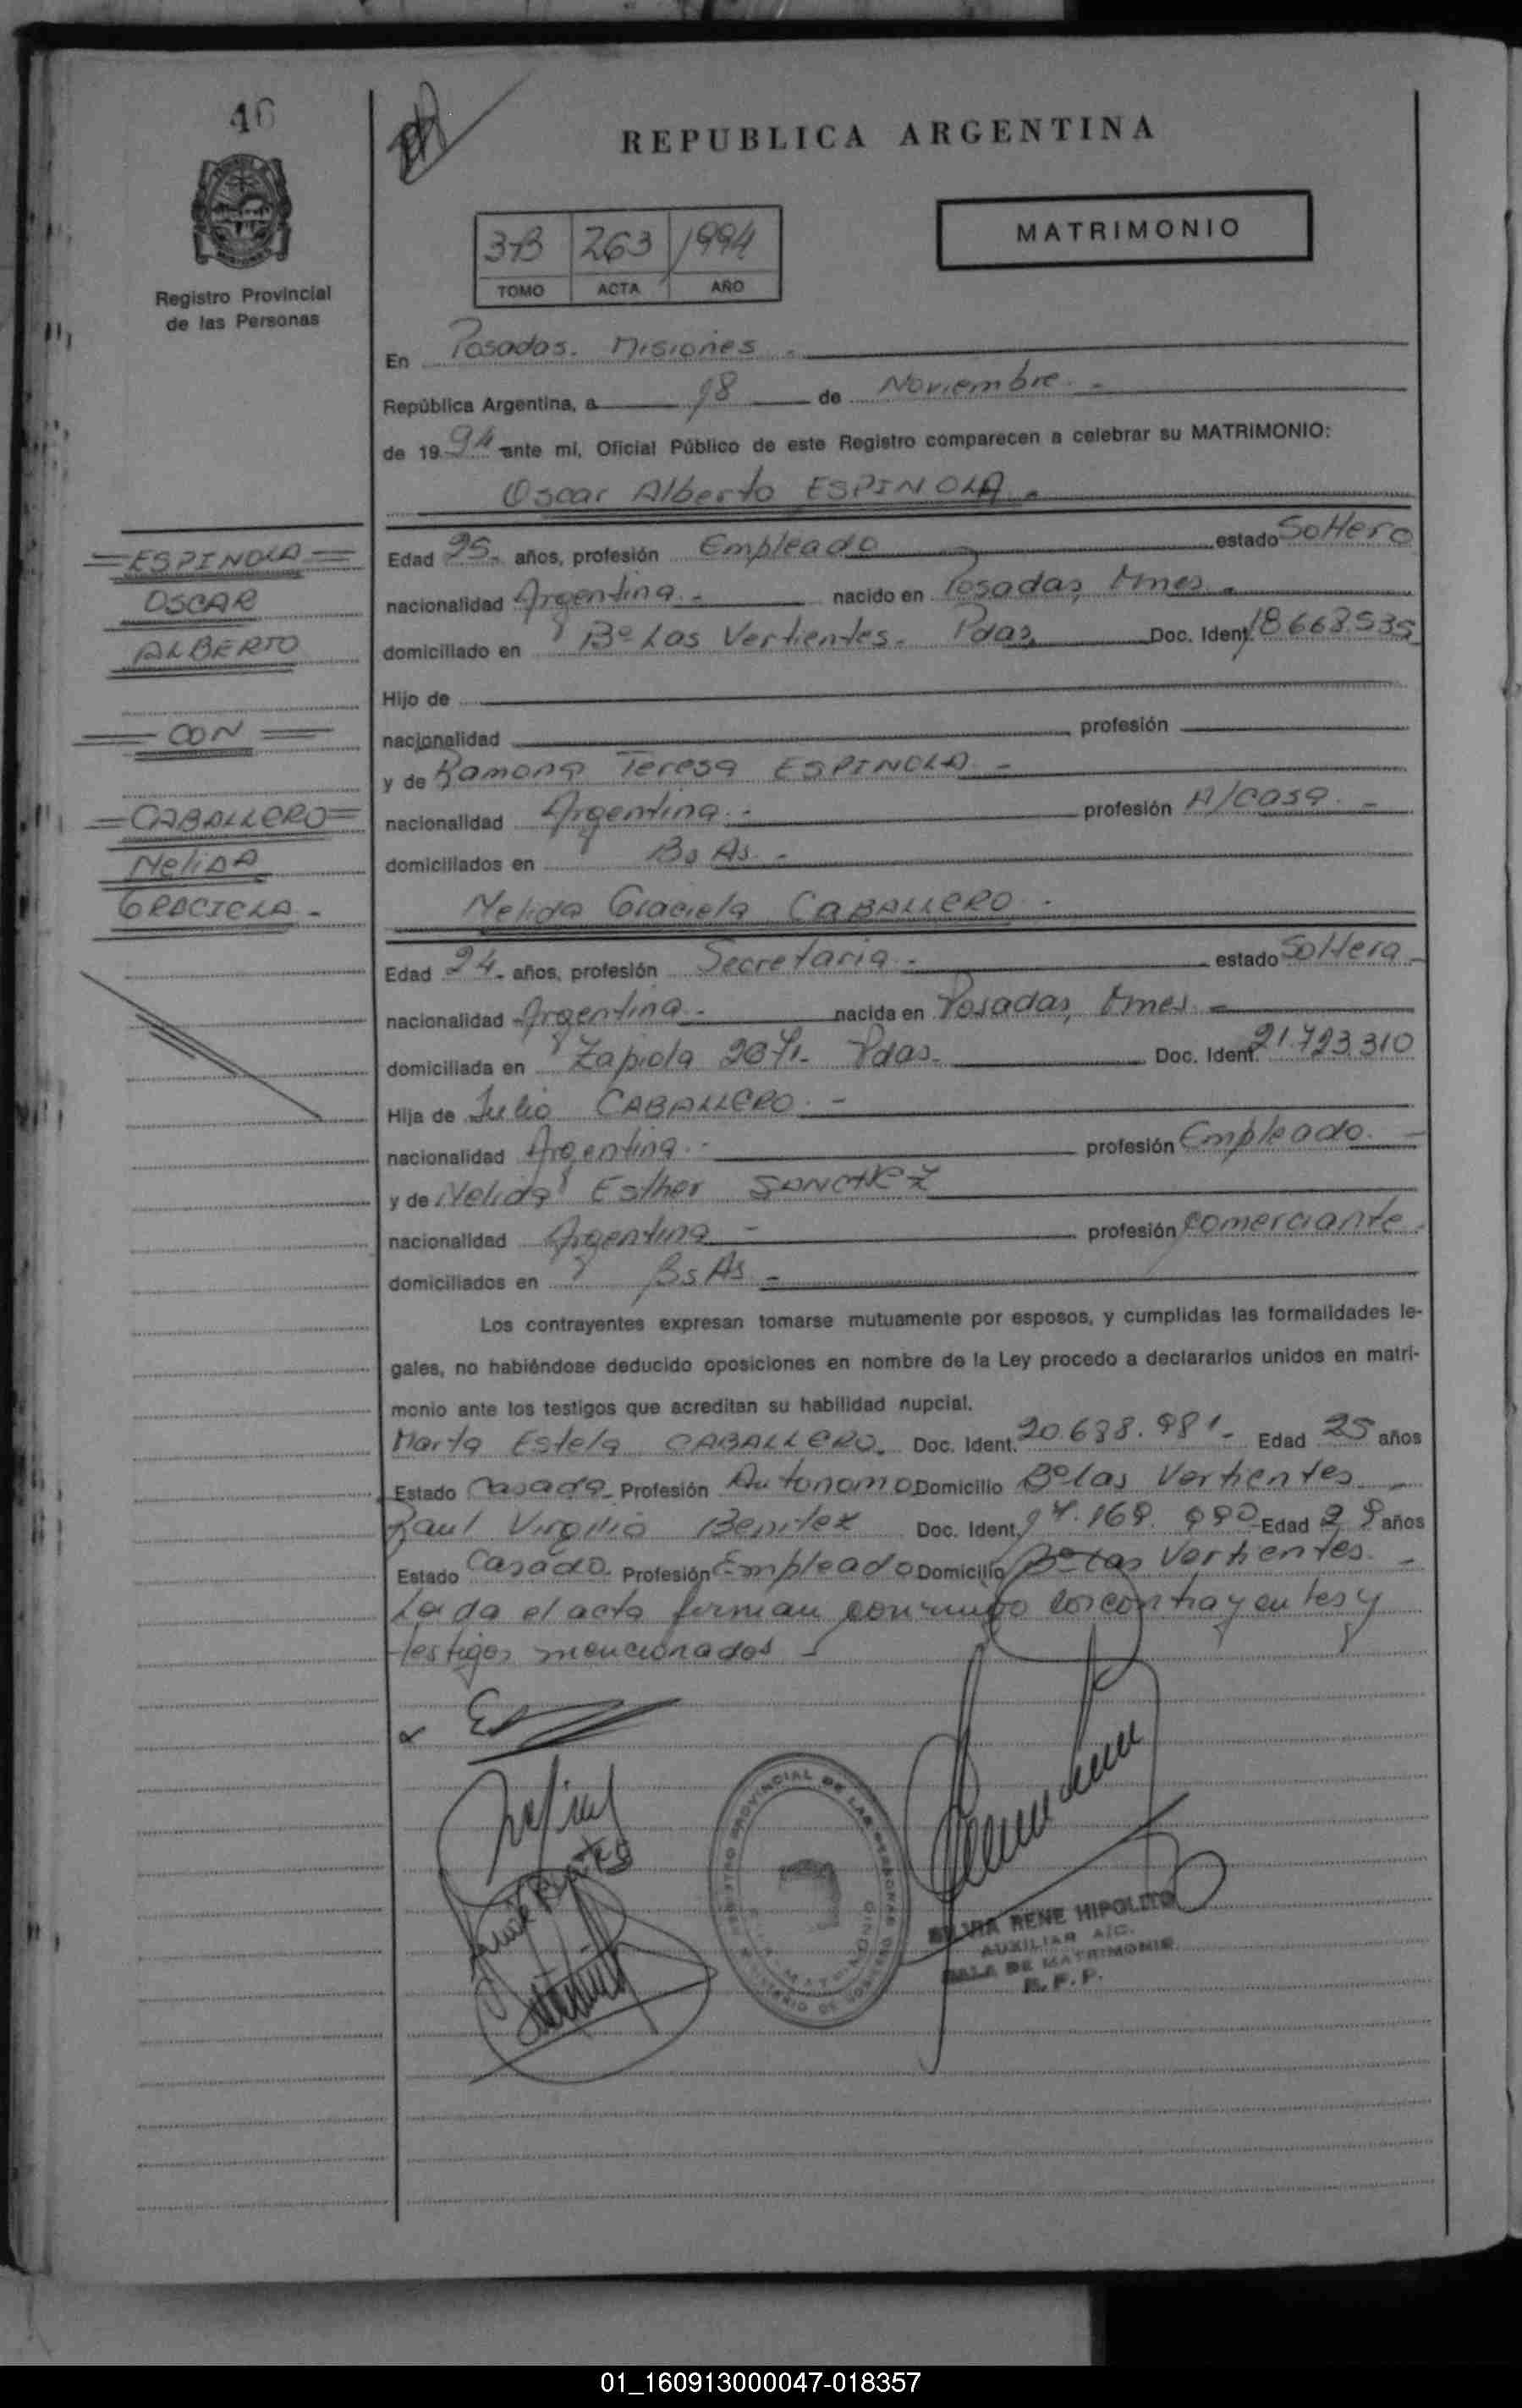 46
REPUBLICA ARGENTINA
Registro Provincial
de las Personas
3-B 263 1994
TOMO ACTA AÑO
MATRIMONIO
En Posadas. Misiones.
República Argentina, a 18 de Noviembre.
de 1994 ante mi, Oficial Público de este Registro comparecen a celebrar su MATRIMONIO:
Oscar Alberto ESPINOLA.
ESPINOLA
OSCAR
ALBERTO
CON
CABALLERO
NELIDA
GRACIELA.
Edad 25. años, profesión Empleado estado Soltero
nacionalidad Argentina. nacido en Posadas, Mnes.
domiciliado en Bº Las Vertientes. Pdas, Doc. Ident. 18.668.535
Hijo de
nacionalidad profesión
y de Ramona Teresa ESPINOLA
nacionalidad Argentina. profesión A/casa.
domiciliados en Bs As.
Nelida Graciela CABALLERO.
Edad 24. años, profesión Secretaria. estado Soltera
nacionalidad Argentina. nacida en Posadas, Mnes.
domiciliada en Zapiola Pdas. Doc. Ident. 21.723.310
Hija de Julio CABALLERO.
nacionalidad Argentina. profesión Empleado.
y de Nelida Esther SANCHEZ
nacionalidad Argentina profesión comerciante.
domiciliados en Bs As
Los contrayentes expresan tomarse mutuamente por esposos, y cumplidas las formalidades le-
gales, no habiéndose deducido oposiciones en nombre de la Ley procedo a declararlos unidos en matri-
monio ante los testigos que acreditan su habilidad nupcial.
Marta Estela CABALLERO. Doc. Ident. Edad 25 años
Estado Casada Profesión Autonomo Domicilio Bº las Vertientes
Raul Virgilio Benitez Doc. Ident. Edad 29 años
Estado Casado. Profesión Empleado Domicilio Bº Las Vertientes.
Leida el acta firman conmigo los contrayentes y
testigos mencionados
REGISTRO PROVINCIAL DE LAS PERSONAS
SILVIA RENE HIPOLITO
AUXILIAR A/C.
SALA DE MATRIMONIO
R. P. P.
01_160913000047-018357